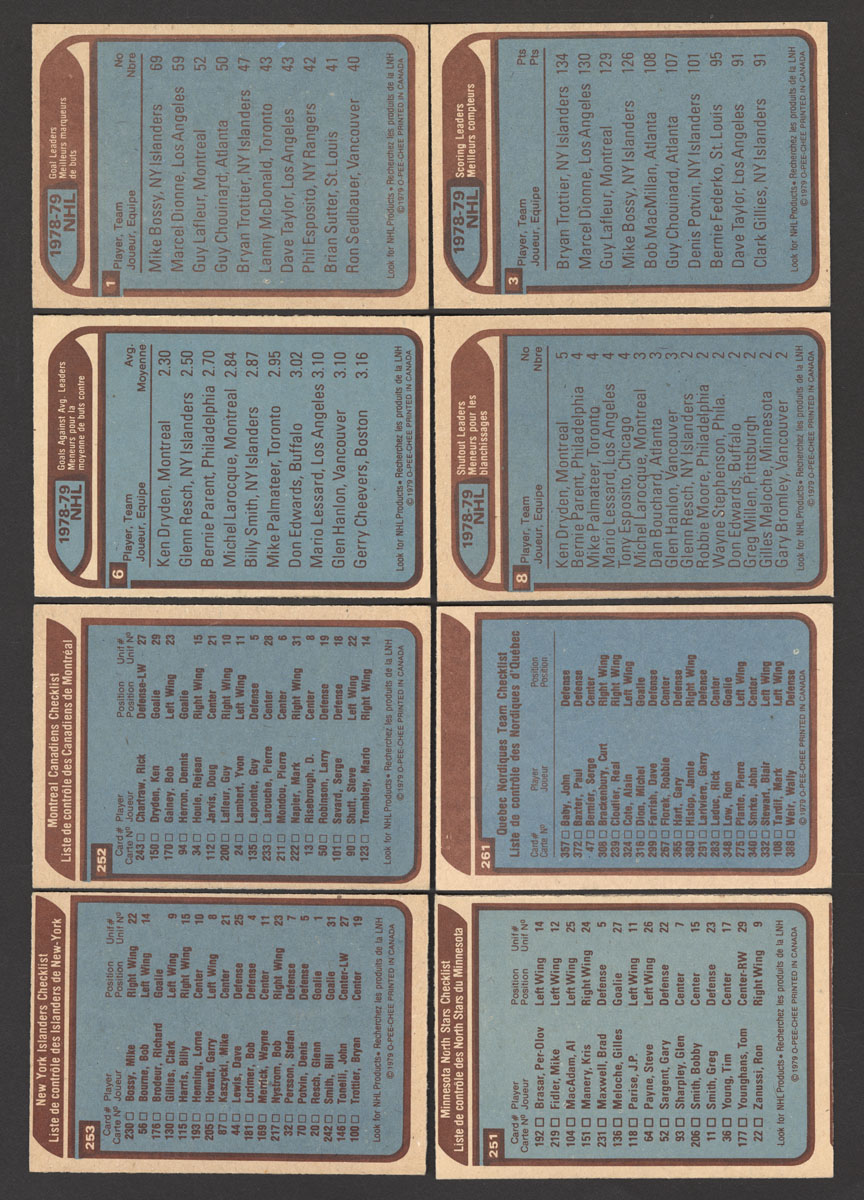 1978-79
NHL
Goal Leaders
Meilleurs marqueurs
de buts
1
Player, Team No
Joueur, Equipe Nbre
Mike Bossy, NY Islanders 69
Marcel Dionne, Los Angeles 59
Guy Lafleur, Montreal 52
Guy Chouinard, Atlanta 50
Bryan Trottier, NY Islanders 47
Lanny McDonald, Toronto 43
Dave Taylor, Los Angeles 43
Phil Esposito, NY Rangers 42
Brian Sutter, St. Louis 41
Ron Sedlbauer, Vancouver 40
Look for NHL Products • Recherchez les produits de la LNH
© 1979 O-PEE-CHEE PRINTED IN CANADA
1978-79
NHL
Scoring Leaders
Meilleurs compteurs
3
Player, Team Pts
Joueur, Equipe Pts
Bryan Trottier, NY Islanders 134
Marcel Dionne, Los Angeles 130
Guy Lafleur, Montreal 129
Mike Bossy, NY Islanders 126
Bob MacMillen, Atlanta 108
Guy Chouinard, Atlanta 107
Denis Potvin, NY Islanders 101
Bernie Federko, St. Louis 95
Dave Taylor, Los Angeles 91
Clark Gillies, NY Islanders 91
Look for NHL Products • Recherchez les produits de la LNH
© 1979 O-PEE-CHEE PRINTED IN CANADA
1978-79
NHL
Goals Against Avg. Leaders
Meneurs pour la
moyenne de buts contre
6
Player, Team Avg.
Joueur, Equipe Moyenne
Ken Dryden, Montreal 2.30
Glenn Resch, NY Islanders 2.50
Bernie Parent, Philadelphia 2.70
Michel Larocque, Montreal 2.84
Billy Smith, NY Islanders 2.87
Mike Palmateer, Toronto 2.95
Don Edwards, Buffalo 3.02
Mario Lessard, Los Angeles 3.10
Glen Hanlon, Vancouver 3.10
Gerry Cheevers, Boston 3.16
Look for NHL Products • Recherchez les produits de la LNH
© 1979 O-PEE-CHEE PRINTED IN CANADA
1978-79
NHL
Shutout Leaders
Meneurs pour les
blanchissages
8
Player, Team No
Joueur, Equipe Nbre
Ken Dryden, Montreal 5
Bernie Parent, Philadelphia 4
Mike Palmateer, Toronto 4
Mario Lessard, Los Angeles 4
Tony Esposito, Chicago 4
Michel Larocque, Montreal 3
Dan Bouchard, Atlanta 3
Glen Hanlon, Vancouver 3
Glenn Resch, NY Islanders 2
Robbie Moore, Philadelphia 2
Wayne Stephenson, Phila. 2
Don Edwards, Buffalo 2
Greg Millen, Pittsburgh 2
Gilles Meloche, Minnesota 2
Gary Bromley, Vancouver 2
Look for NHL Products • Recherchez les produits de la LNH
© 1979 O-PEE-CHEE PRINTED IN CANADA
Montreal Canadiens Checklist
Liste de contrôle des Canadiens de Montréal
252
Card # Player Position Unif #.
Carte Nº Joueur Position Unif Nº
243 Chartraw, Rick Defense-LW 27
150 Dryden, Ken Goalie 29
170 Gainey, Bob Left Wing 23
94 Herron, Dennis Goalie
34 Houle, Rejean Right Wing 15
112 Jarvis, Doug Center 21
200 Lafleur, Guy Right Wing 10
24 Lambert, Yvon Left Wing 11
135 Lapointe, Guy Defense 5
233 Larouche, Pierre Center 28
211 Mondou, Pierre Center 6
222 Napier, Mark Right Wing 31
13 Risebrough, D. Center 8
50 Robinson, Larry Defense 19
101 Savard, Serge Defense 18
90 Shutt, Steve Left Wing 22
123 Tremblay, Mario Right Wing 14
Look for NHL Products • Recherchez les produits de la LNH
© 1979 O-PEE-CHEE PRINTED IN CANADA
Quebec Nordiques Team Checklist
Liste de contrôle des Nordiques d'Québec
261
Card # Player Position
Carte Nº Joueur Position
357 Baby, John Defense
372 Baxter, Paul Defense
47 Bernier, Serge Center
306 Brackenbury, Curt Right Wing
239 Cloutier, Real Right Wing
324 Cote, Alain Left Wing
316 Dion, Michel Goalie
299 Farrish, Dave Defense
267 Ftorek, Robbie Center
365 Hart, Gary Defense
380 Hislop, Jamie Right Wing
291 Lariviere, Garry Defense
283 Leduc, Rich Center
348 Low, Ron Goalie
275 Plante, Pierre Left Wing
340 Smrke, John Center
332 Stewart, Blair Left Wing
108 Tardif, Mark Left Wing
388 Weir, Wally Defense
© 1979 O-PEE-CHEE PRINTED IN CANADA
New York Islanders Checklist
Liste de contrôle des Islanders de New-York
253
Card # Player Position Unif #.
Carte Nº Joueur Position Unif Nº
230 Bossy, Mike Right Wing 22
56 Bourne, Bob Left Wing 14
176 Brodeur, Richard Goalie
130 Gillies, Clark Left Wing 9
115 Harris, Billy Right Wing 15
193 Henning, Lorne Center 10
205 Howatt, Garry Left Wing 8
87 Kaszycki, Mike Center 21
44 Lewis, Dave Defense 25
181 Lorimer, Bob Defense 4
169 Merrick, Wayne Center 11
217 Nystrom, Bob Right Wing 23
32 Persson, Stefan Defense 7
70 Potvin, Denis Defense 5
20 Resch, Glenn Goalie 1
242 Smith, Bill Goalie 31
146 Tonelli, John Center-LW 27
100 Trottier, Bryan Center 19
Look for NHL Products • Recherchez les produits de la LNH
© 1979 O-PEE-CHEE PRINTED IN CANADA
Minnesota North Stars Checklist
Liste de contrôle des North Stars du Minnesota
251
Card # Player Position Unif #.
Carte Nº Joueur Position Unif Nº
192 Brasar, Per-Olov Left Wing 14
219 Fidler, Mike Left Wing 12
104 MacAdam, Al Left Wing 25
151 Manery, Kris Right Wing 24
231 Maxwell, Brad Defense 5
136 Meloche, Gilles Goalie 27
118 Parise, J.P. Left Wing 11
64 Payne, Steve Left Wing 26
52 Sargent, Gary Defense 22
93 Sharpley, Glen Center 7
206 Smith, Bobby Center 15
11 Smith, Greg Defense 23
36 Young, Tim Center 17
177 Younghans, Tom Center-RW 29
22 Zanussi, Ron Right Wing 9
Look for NHL Products • Recherchez les produits de la LNH
© 1979 O-PEE-CHEE PRINTED IN CANADA